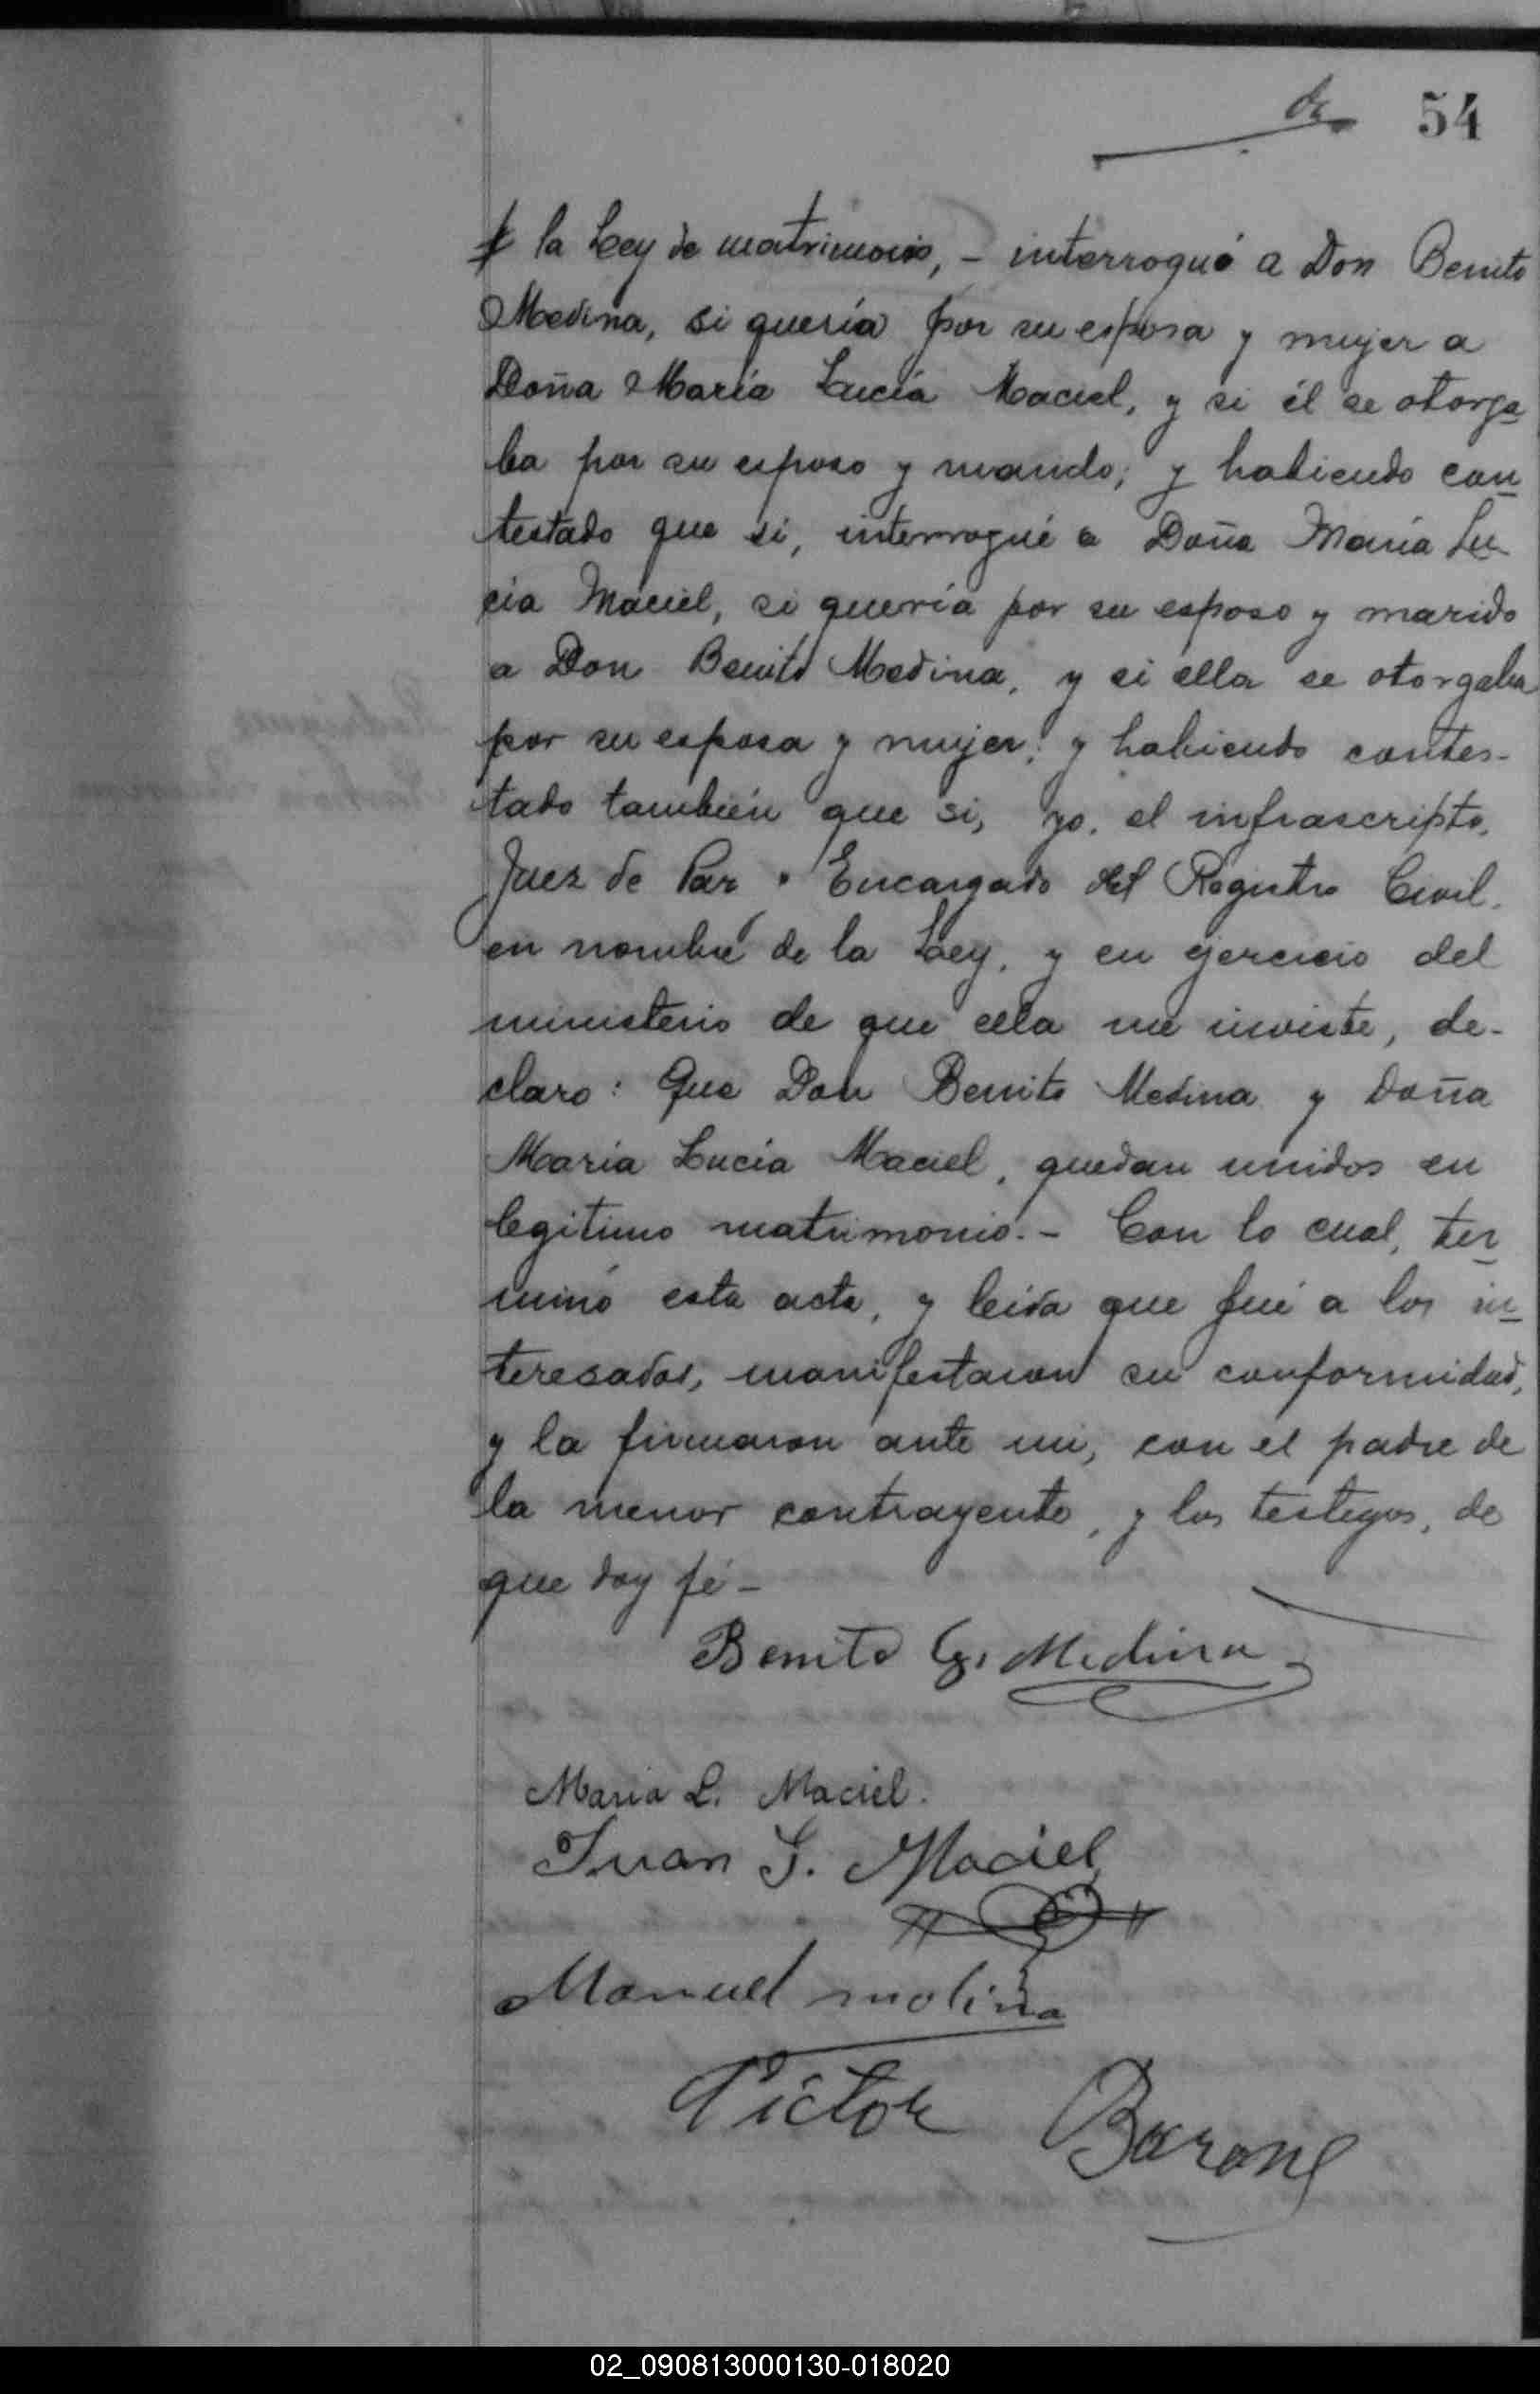 de 54
la Ley de matrimonio, - interrogué a Don Benito
Medina, si quería por su esposa y mujer a
Doña María Lucía Maciel, y si él se otorga
ba por su esposo y marido; y habiendo con
testado que si, interrogué a Doña María Lu
cía Maciel, si quería por su esposo y marido
a Don Benito Medina, y si ella se otorgaba
por su esposa y mujer; y habiendo contes-
tado también que si, yo, el infrascripto,
Juez de Paz Encargado del Registro Civil,
en nombre de la Ley, y en ejercicio del
ministerio de que ella me inviste, de-
claro: Que Don Benito Medina y Doña
María Lucía Maciel, quedan unidos en
legítimo matrimonio.- Con lo cual, ter
minó esta acta, y leida que fué a los in
teresados, manifestaron su conformidad,
y la firmaron ante mi, con el padre de
la menor contrayente, y los testigos, de
que doy fé-
Benito G. Medina
Maria L. Maciel.
Juan G. Maciel
Manuel molina
Victor Barone
02_090813000130-018020